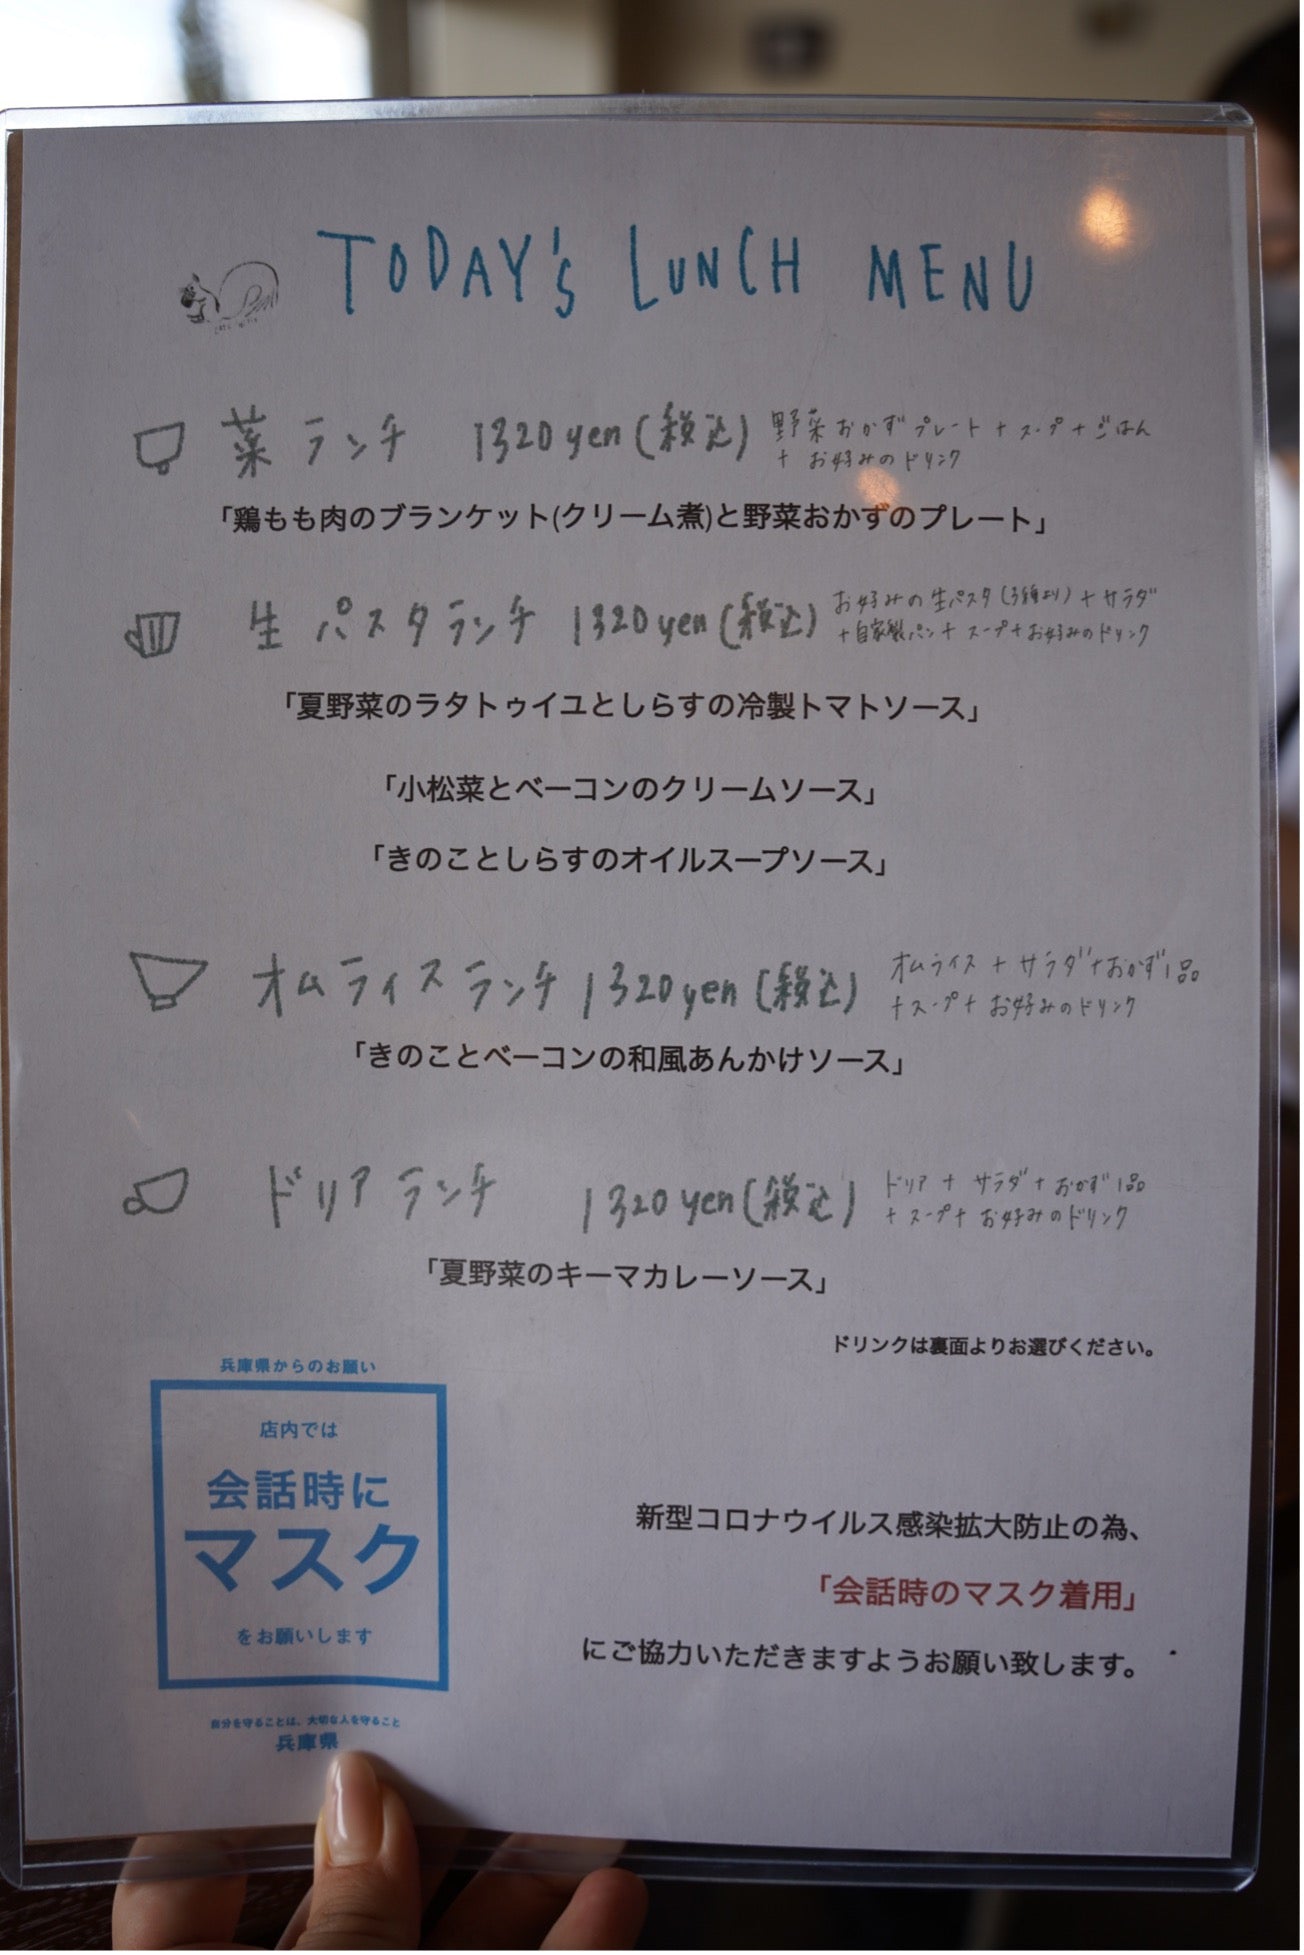 TODAY'S LUNCH MENU
菜ランチ 1320yen(税込) 野菜おかずプレート+スープ+ごはん
+お好みのドリンク
「鶏もも肉のブランケット(クリーム煮)と野菜おかずのプレート」
生パスタランチ 1320yen(税込) お好みの生パスタ(3種より)+サラダ
+自家製パン+スープ+お好みのドリンク
「夏野菜のラタトゥイユとしらすの冷製トマトソース」
「小松菜とベーコンのクリームソース」
「きのことしらすのオイルスープソース」
オムライスランチ 1320yen(税込) オムライス+サラダ+おかず1品
+スープ+お好みのドリンク
「きのことベーコンの和風あんかけソース」
ドリアランチ 1320yen(税込) ドリア+サラダ+おかず1品
+スープ+お好みのドリンク
「夏野菜のキーマカレーソース」
ドリンクは裏面よりお選びください。
兵庫県からのお願い
店内では
会話時に
マスク
をお願いします
自分を守ることは、大切な人を守ること
兵庫県
新型コロナウイルス感染拡大防止の為、
「会話時のマスク着用」
にご協力いただきますようお願い致します。